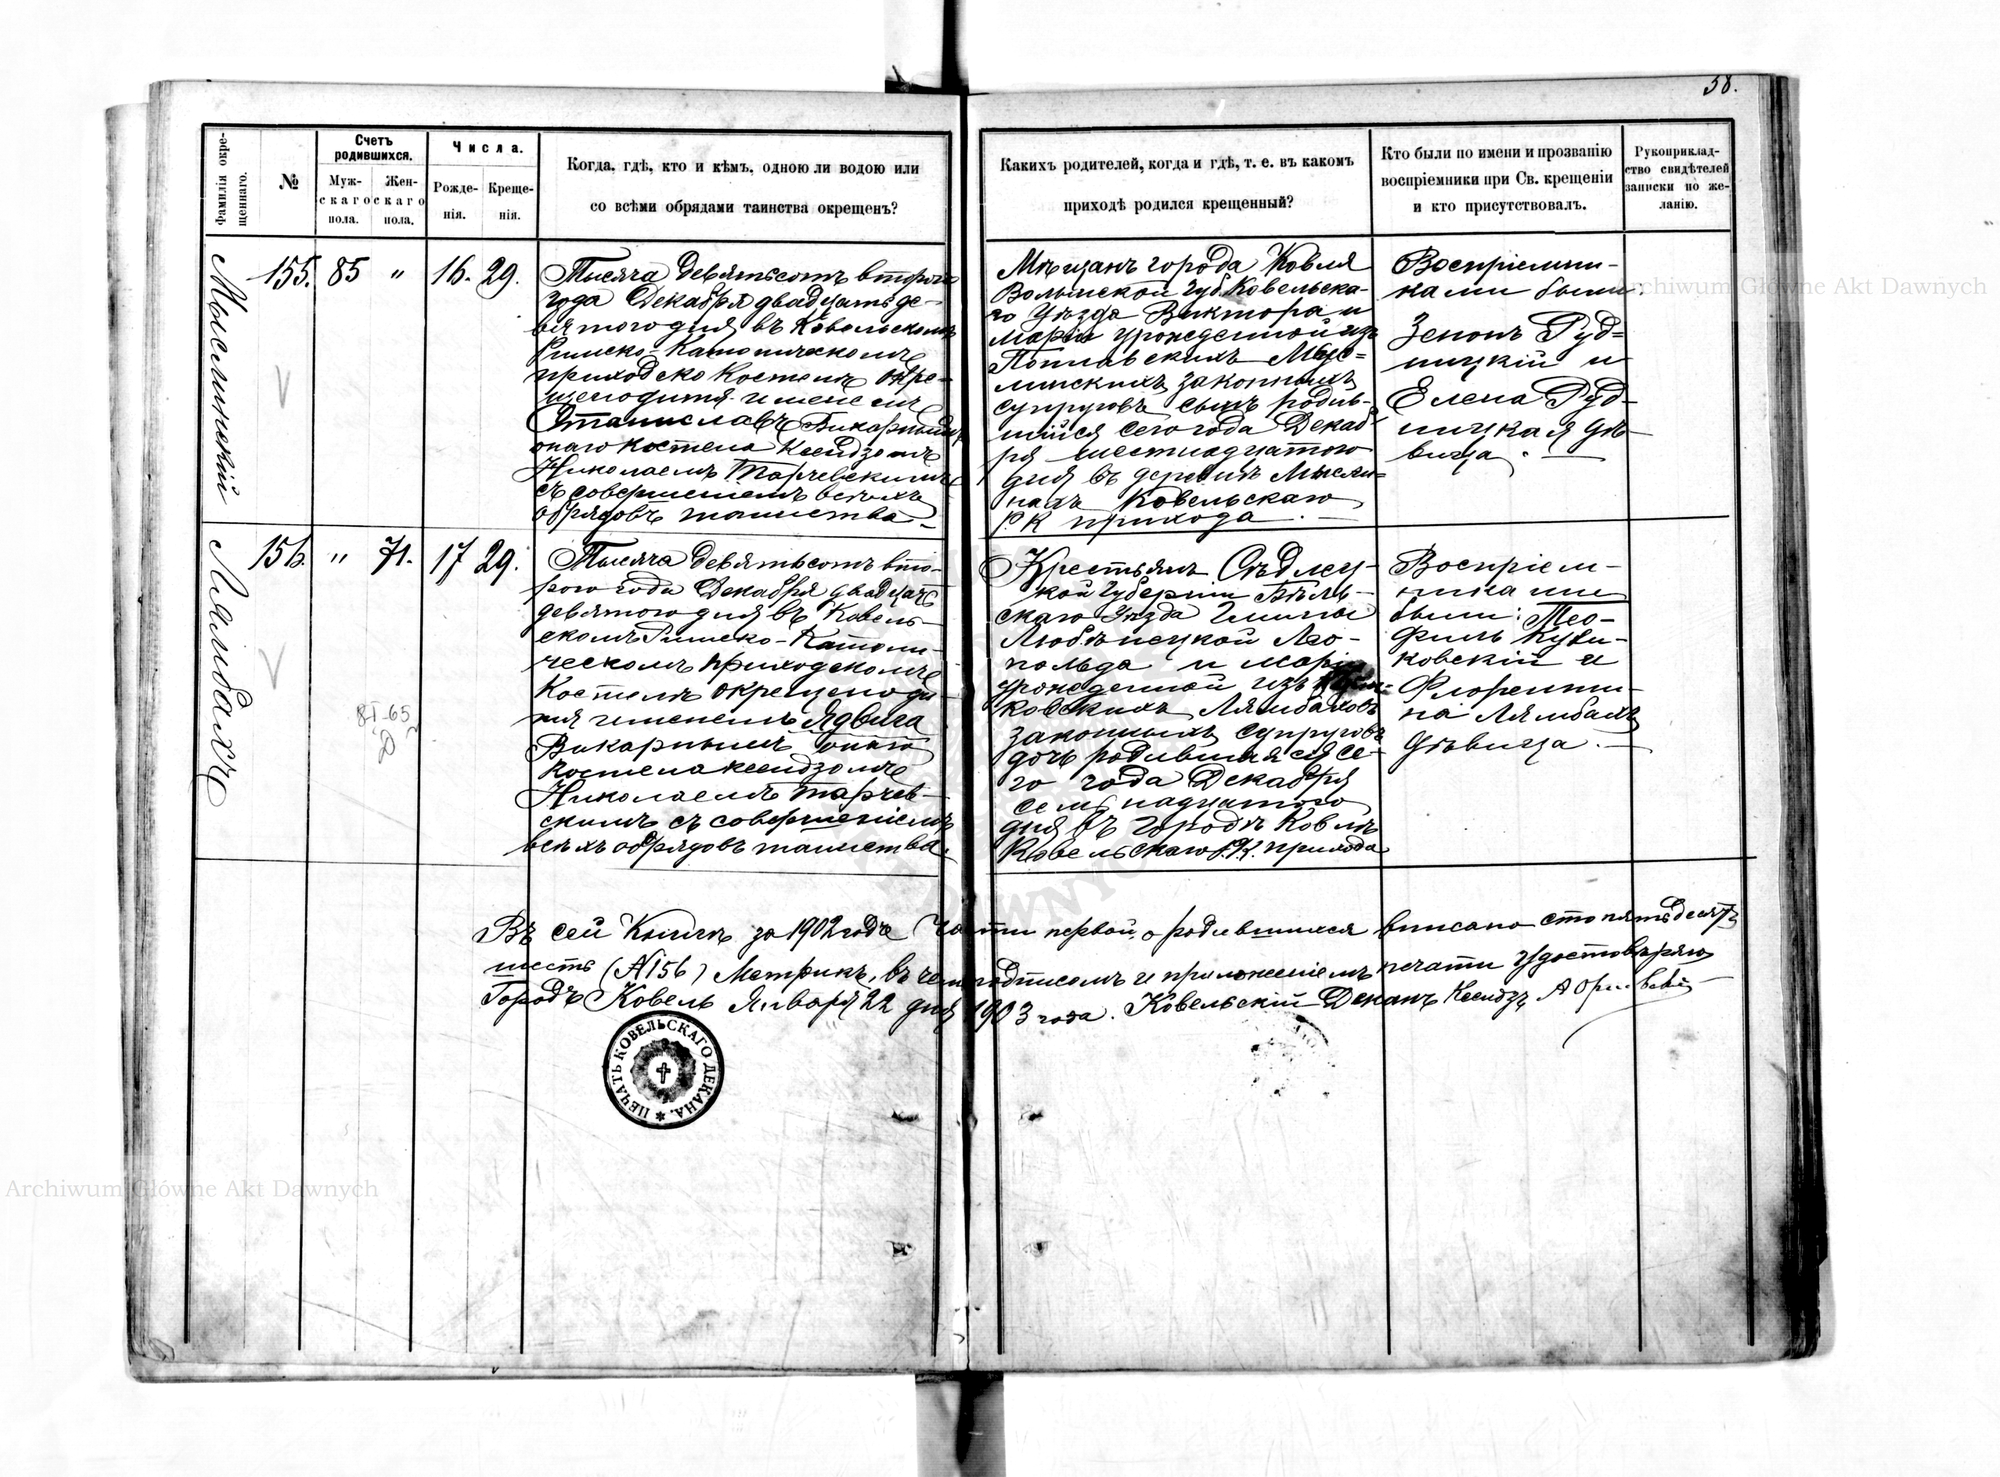 58.
фамилія окре-
щеннаго.
№
Счетъ
родившихся.
Муж-
скаго
пола.
Жен-
скаго
пола.
Числа.
Рожде-
нія.
Креще-
нія.
Когда, гдѣ, кто и кѣмъ, одною ли водою или
со всѣми обрядами таинства окрещенъ?
Какихъ родителей, когда и гдѣ, т. е. въ какомъ
приходѣ родился крещенный?
Кто были по имени и прозванію
воспріемники при Св. крещеніи
и кто присутствовалъ.
Рукоприклад-
ство свидѣтелей
записки по же-
ланію.
Мыслинскій
155. 85 " 16. 29.
Тысяча девятьсотъ второго
года Декабря двадцать де-
вятого дня въ Ковельскомъ
Римско-Католическомъ
приходско Костелѣ окре-
щено дитя именемъ
Станиславъ Викарнымъ
онаго костела Ксендзомъ
Николаемъ Тарчевскимъ
съ совершенiемъ всѣхъ
обрядовъ таинства
Мѣщанъ города Ковля
Волынской губ. Ковельска-
го Уѣзда Виктора и
Маріи урожденной изъ
Поплавскихъ Мыс-
линскихъ законныхъ
супруговъ сынъ родив-
шійся сего года Декаб-
ря шестнадцатого
дня въ деревнѣ Мысли-
нахъ Ковельскаго
Р.К прихода.
Воспріемни-
ками были:
Зенонъ Руд-
ницкій и
Елена Руд-
ницкая дѣ-
вица.
Лямбахъ
156. " 71. 17 29.
Тысяча девятьсотъ вто-
рого года Декабря двадцать
девятого дня въ Ковель-
скомъ Римско-Католи-
ческомъ приходскомъ
Костелѣ окрещено ди-
тя именемъ Ядвига
Викарнымъ онаго
костела ксендзомъ
Николаемъ Тарчев-
скимъ съ совершеніемъ
всѣхъ обрядовъ таинства.
Крестьянъ Сѣдлец-
кой Губерніи Бѣль-
скаго Уѣзда Гмины
Любѣнецкой Лео-
польда и Маріи
урожденной изъ
ковскихъ Лямбаховъ
законныхъ супруговъ
дочь родившаяся се-
го года Декабря
семнадцатого
дня въ городѣ Ковлѣ
Ковельскаго Р.К. прихода
Воспріем-
никами
были: Тео-
филь Кули-
ковскій и
Флоренти-
на Лямбахъ
дѣвица.
81-65
Въ сей Книгѣ за 1902 годъ Части первой, о родившихся вписано сто пятьдесятъ
шесть (№156) Метрикъ, въ чемъ подписомъ и приложеніемъ печати удостовѣряю
Городъ Ковель Января 22 дня 1903 года. Ковельскій Деканъ Ксендзъ
ПЕЧАТЬ КОВЕЛЬСКАГО ДЕКАНА.
Archiwum Główne Akt Dawnych
Archiwum Główne Akt Dawnych